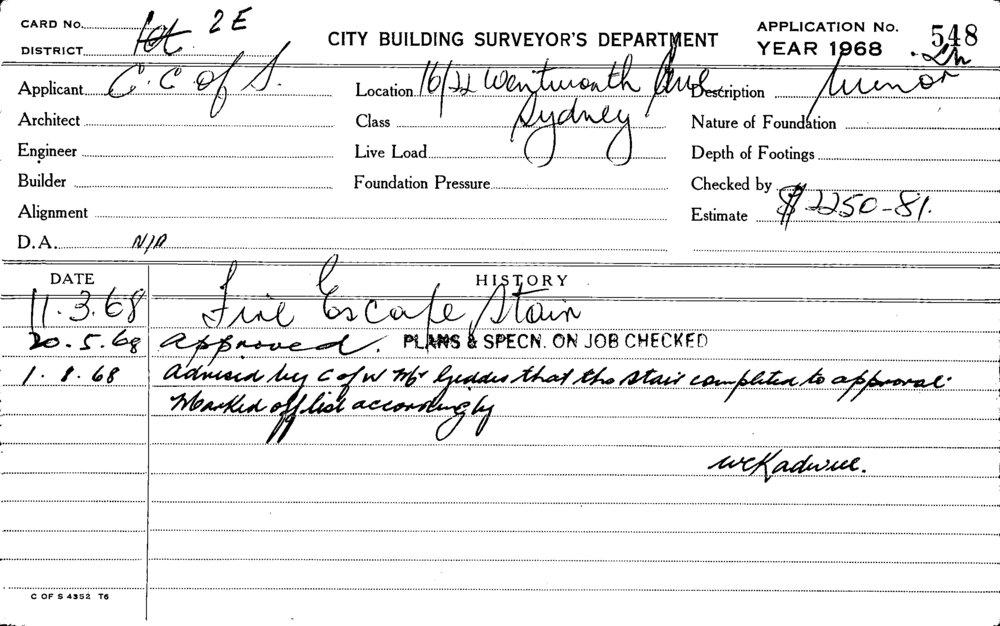 CARD No. 1st 2E
DISTRICT
CITY BUILDING SURVEYOR'S DEPARTMENT
APPLICATION No. 548
YEAR 1968
Applicant C. C of S.
Location 16/22 Wentworth Ave
Sydney
Description Minor
Architect
Class
Nature of Foundation
Engineer
Live Load
Depth of Footings
Builder
Foundation Pressure
Checked by
Alignment
Estimate $2250-81.
D.A. N/A
DATE HISTORY
11.3.68 Fire Escape Stair
20.5.68 Approved. PLANS & SPECN. ON JOB CHECKED
1.8.68 Advised by C of W Mr Geddes that the stair completed to approval.
Marked off list accordingly
C OF S 4352 T6